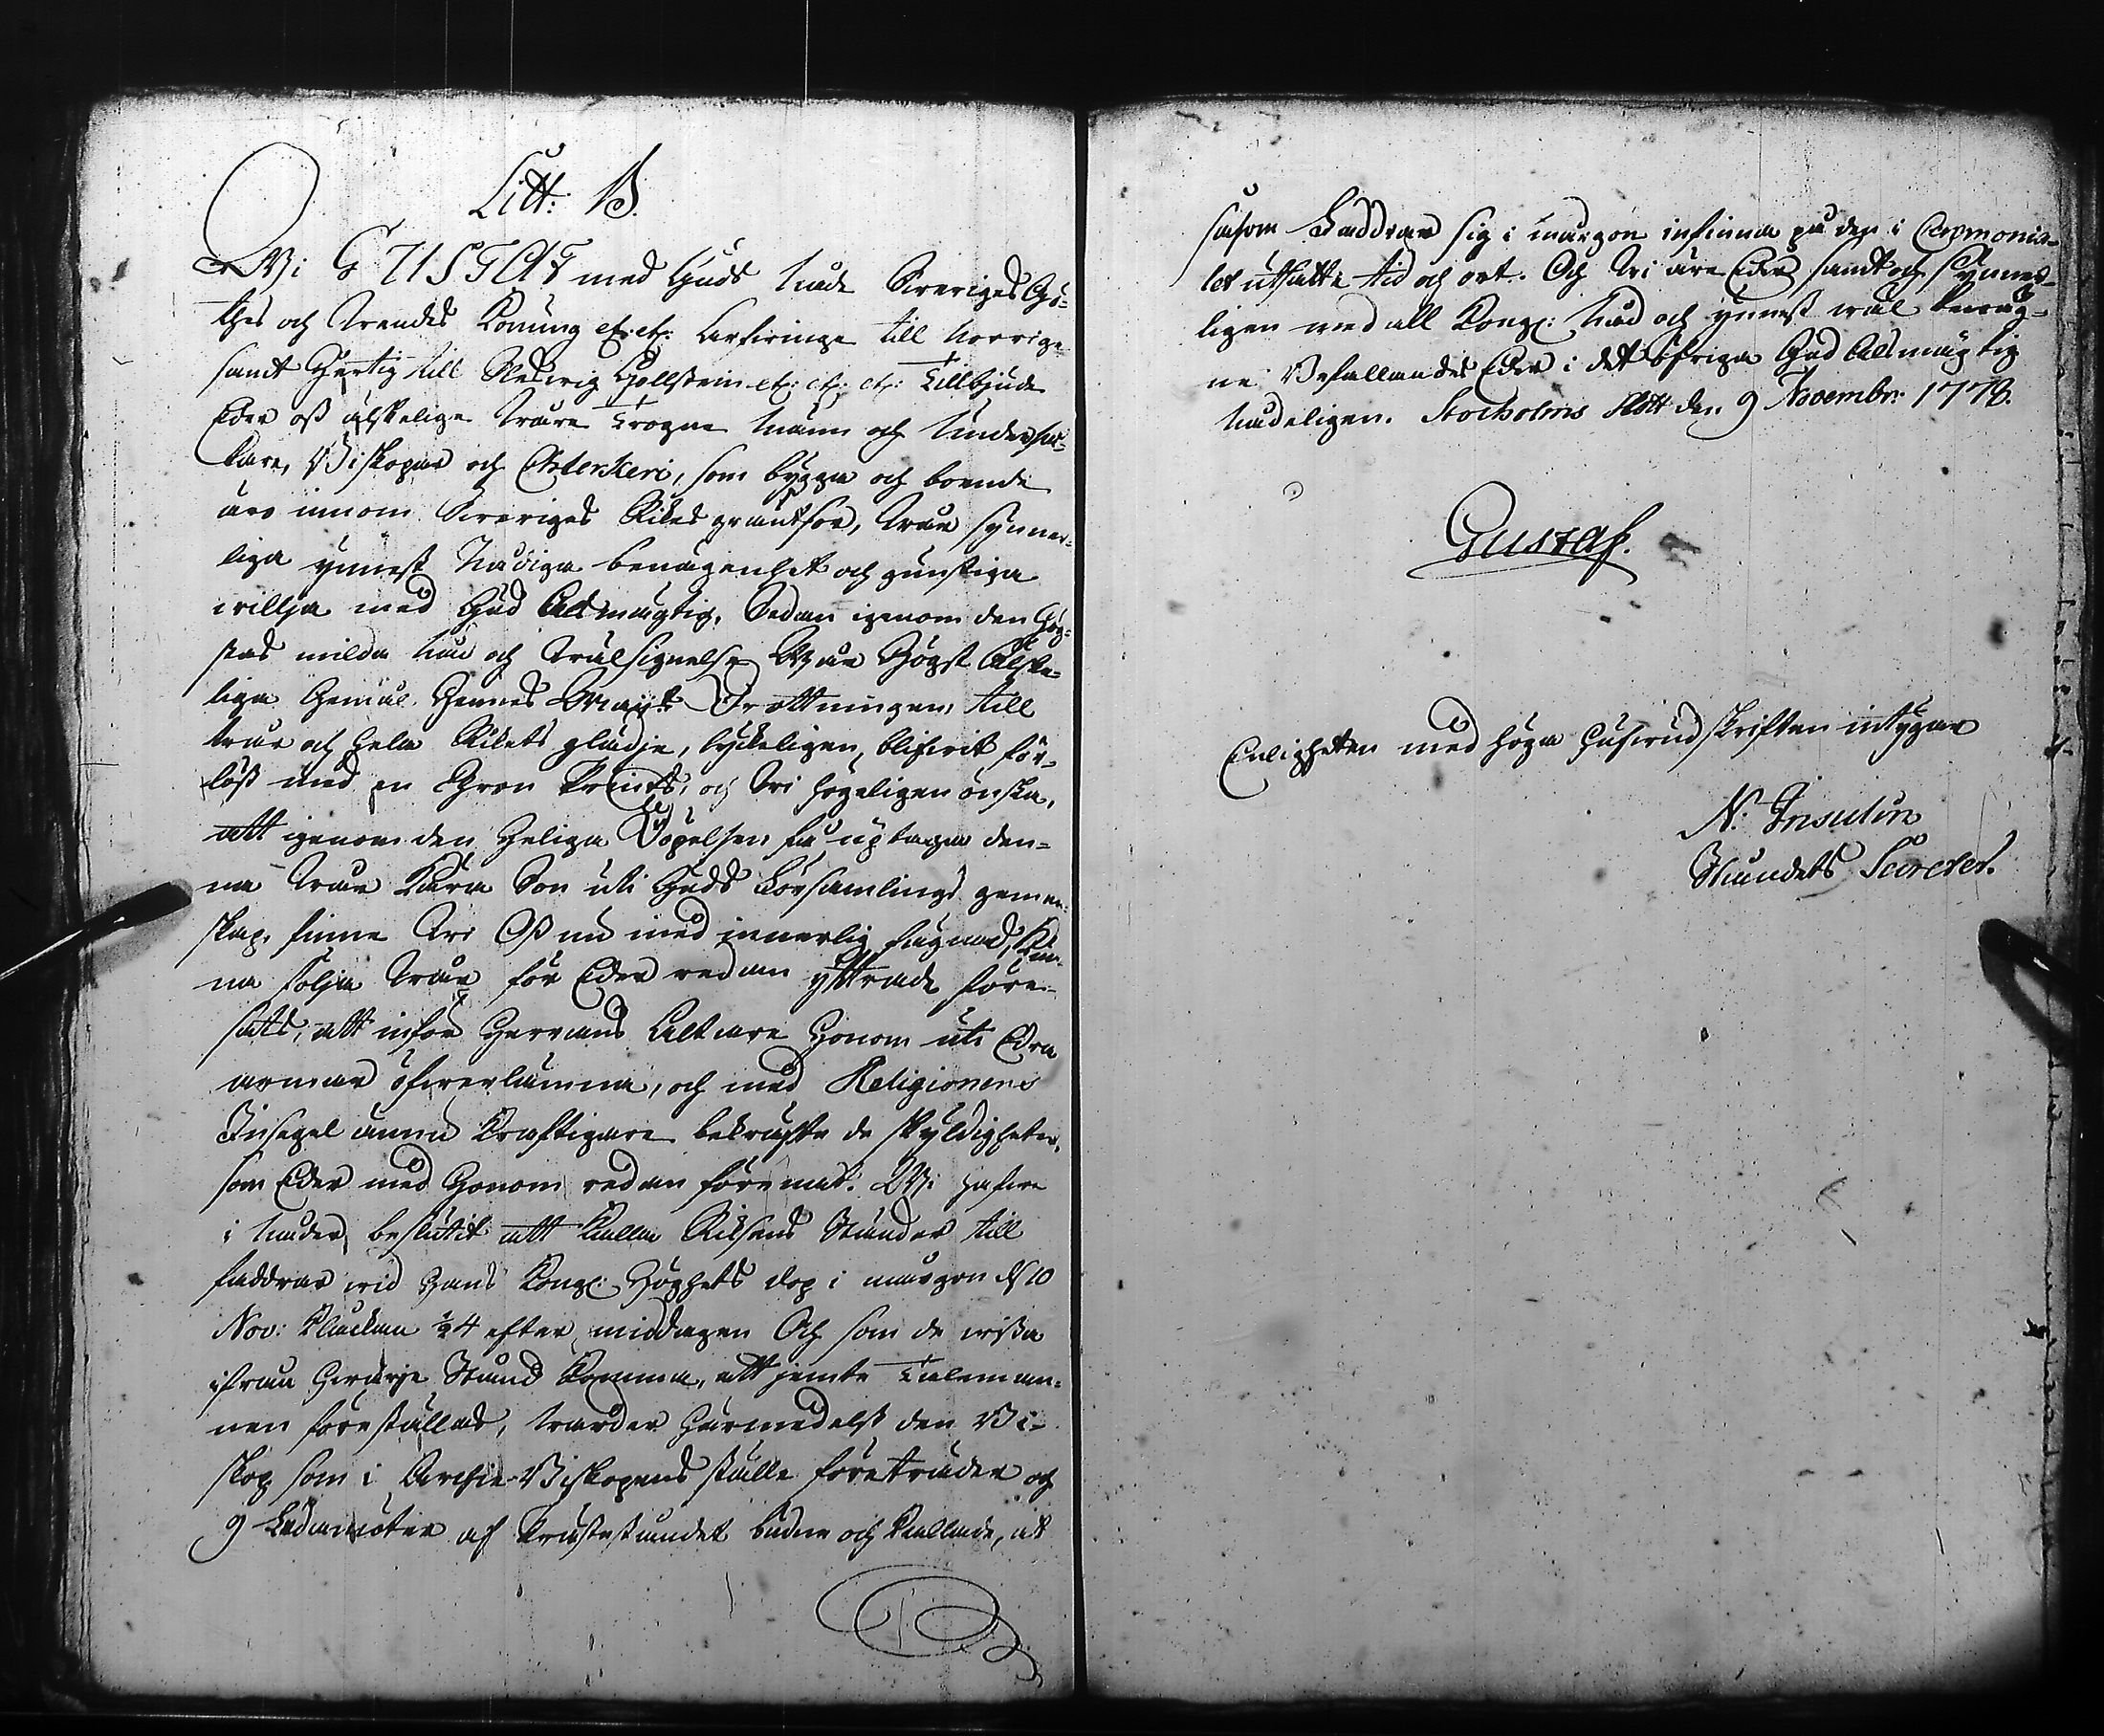 Litt: B.
Wi GUSTAF med Guds Nåde Sveriges Gö-
thes och Wendes Konung etc: etc: Arfwinge till Norrige
samt Hertig till Sleswig Hollstein etc: etc: etc: Tillbjude
Eder oss älskelige Wåre Trogne Män och Underså-
tare, Biskopar och Clerkeri, som bygga och boende
äro innom Sweriges Rikes gräntsor, Wår synner-
liga ynnest Nådiga benägenhet och gunstiga
willja med Gud Alsmägtig, Sedan igenom den Hög-
stas milda Nåd och Wälsignelse Wår Högst Älske-
liga Gemål Hennes Maj:t Drottningen, till
Wår och hela Rikets glädje, lyckeligen, blifwit för-
löst med en Chron Prints, och Wi högeligen önska,
att igenom den Heliga Döpelsen få uptaga den-
na Wår Kära Son uti Guds Församlings gemen-
skap, finne Wi Oss nu med innerlig fägnad, Kun-
na följa Wår för Eder redan yttrade före-
sats, att inför Herrans Altare Honom uti Edra
armar öfwerlämna, och med Religionens
Insegel ännu Kraftigare bekräfta de skyldigheter,
som Eder med Honom redan förenat. Wi hafwe
i Nåder beslutit att Kalla Riksens Ständer till
faddrar wid Hans Kongl: Höghets dop i morgon d 10
Nov: Kluckan ½ 4 efter middagen Och som de wissa
ifrån Hwarje Stånd Komma, att jemte Taleman-
nen föreställas, warder Härmedelst den Bi-
skop som i Archie-Biskopens ställe företräder och
9 Ledamöter af Prästeståndet budne och Kallade, at
såsom Faddrar sig i morgon infinna på den i Ceremonia-
let utsatte tid och ort. Och Wi äre Eder samt och Synner-
ligen med all Kongl: Nåd och ynnest wäl bewåg-
ne Befallandes Eder i det öfriga Gud Alsmägtig
Nådeligen. Stockholms Slott den 9 Novembr: 1778.
Gustaf.
Enligheten med höga hufwudskriften intygar
N: Insulin
Ståndets Secreter.